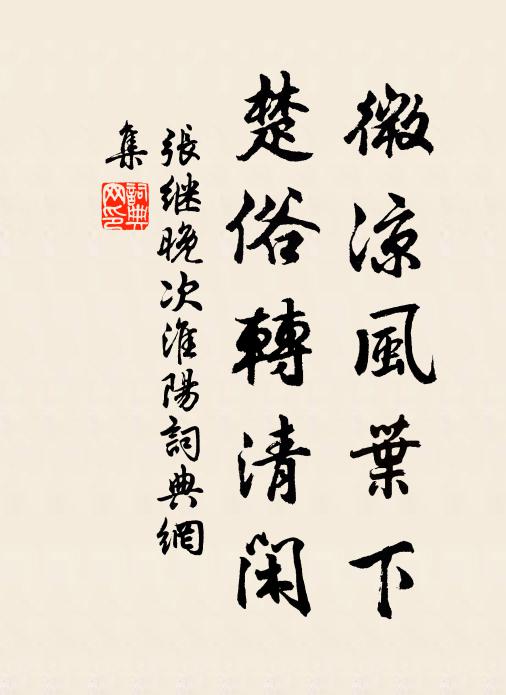 微涼風葉下
楚俗轉清閑
張继晚次淮陽詞典網
集
詞典
网印